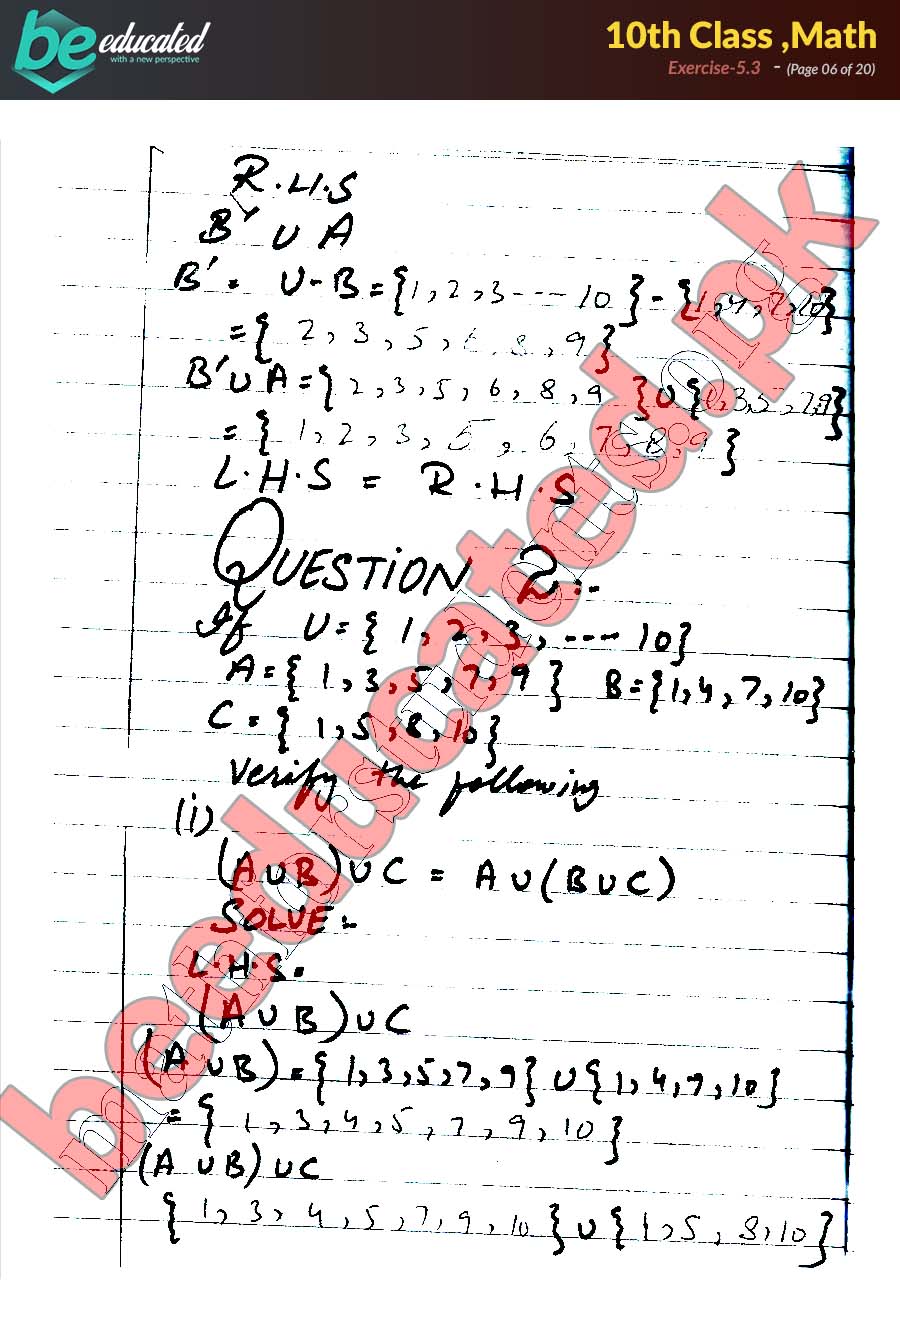 be educated
with a new perspective
10th Class ,Math
Exercise-5.3 - (Page 06 of 20)
R.H.S
B' ∪ A
B' = U-B = {1, 2, 3 ---- 10} - {1, 4, 7, 10}
= { 2, 3, 5, 6, 8, 9 }
B' ∪ A = { 2, 3, 5, 6, 8, 9 } ∪ {1, 3, 5, 7, 9}
= { 1, 2, 3, 5, 6, 7, 8, 9 }
L.H.S = R.H.S
QUESTION 2:-
If U = { 1, 2, 3, ---- 10}
A = { 1, 3, 5, 7, 9 } B = {1, 4, 7, 10}
C = { 1, 5, 8, 10}
Verify the following
(i)
(A∪B)∪C = A∪(B∪C)
SOLVE:-
L.H.S.
(A∪B)∪C
(A∪B) = { 1, 3, 5, 7, 9} ∪ {1, 4, 7, 10}
= { 1, 3, 4, 5, 7, 9, 10}
(A∪B)∪C
{ 1, 3, 4, 5, 7, 9, 10} ∪ {1, 5, 8, 10}
beeducated.pk